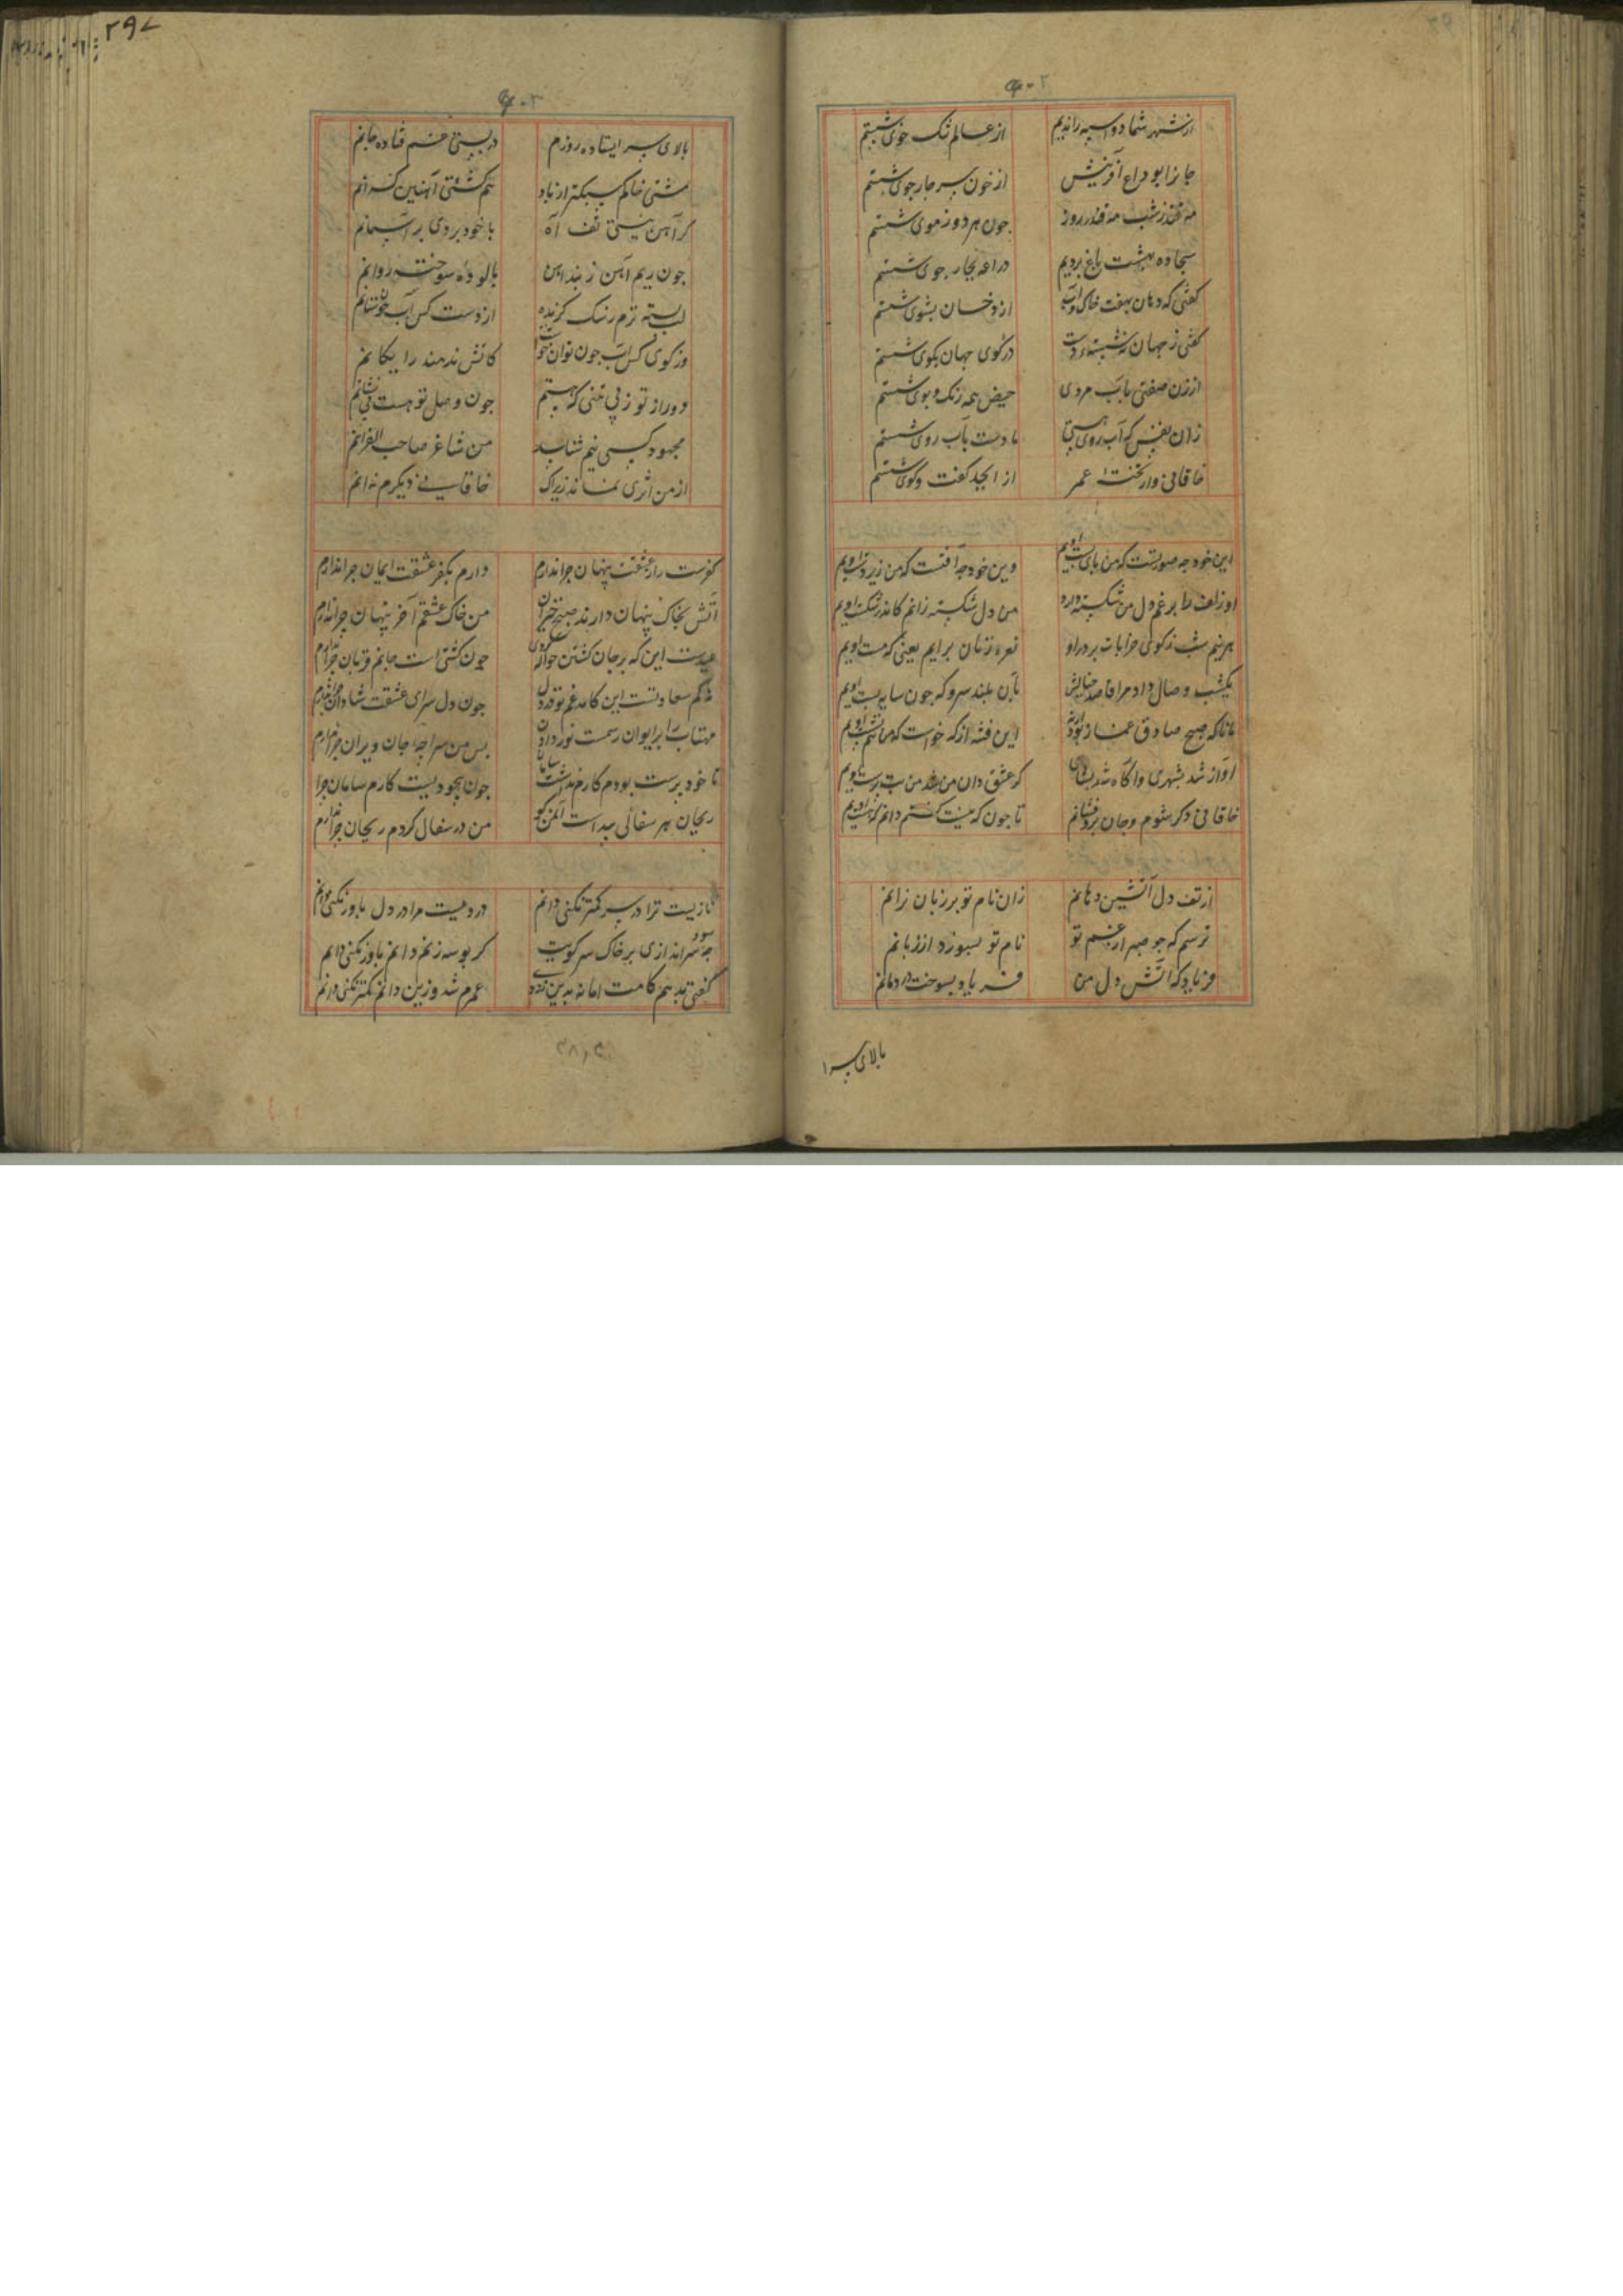 از شهر شما دواسبه راندیم از عالم تنگ خوی شستم
جانرا بوداع آفرینش از خون بسر چار جوی شستم
مه قندز شب مه قندر روز جون هر دو ز موی شستم
سجاده بهشت باغ بردیم دراعه بچار جوی شستم
کفتی که دهان بهفت خاک و آب از دخسان بشوی شستم
کفتی ز جهان نشسته دست در کوی جهان بکوی شستم
از زن صفتی بآب مردی حیض همه رنک و بوی شستم
زان نفس که آب روی هستی ما دست بآب روی شستم
خاقانی وار تخته عمر از ابجد کفت وکوی شستم
این خود چه صورتست که من پای بست اویم وین خود چه آفتست که من زیر دست اویم
او زلف را برغم دل من شکسته دارد من دل شکسته زانم کاندر شکست اویم
هر نیم شب ز کوی خرابات بر در او نعره زنان برایم یعنی که مست اویم
یکشب وصال داد مرا قاصد خیالش بآن بلند سرو که جون سایه پست اویم
مانا که صبح صادق غماز بود ارنه این فتنه از که خواست که من هم نشست اویم
اواز شد بشهری و اکاه شد بشاهی کز عشق دان من شد من بت پرست اویم
خاقانی ذکر شوم و جان برو فشانم تا جون که نیست کشتم دانم که هست اویم
از تف دل آتشین دهانم زان نام تو بر زبان نرانم
ترسم که جو صبر از غم تو نام تو بسوزد از زبانم
فریاد که آتش دل من فریاد بسوخت در دهانم
بالای سر ا
۲۹۷
بالای سر ایستاده روزم در پستی غم فتاده جانم
مشتی خاکم سبکتر از باد هم کشتی آهنین کرانم
کر آهن نیستی تف آه با خود بردی بر آسمانم
جون ریم آهن ز بند آهن پالوده سوخته روانم
لب بسته ترم ز سنک کزنده از دست کس آب جون ستانم
وز کوی کس آب جون توان جست کاتش ندهند رایکانم
دور از تو ز بی تنی که هستم جون وصل تو هست بی نشانم
مجهود کسی نیم شتابد من شاعر صاحب القرانم
از من اثری نماند زیراک خاقانی دیکرم نه انم
کفرست راز عشقت پنهان چرا ندارم دارم بکفر عشقت ایمان چرا ندارم
آتش بخاک پنهان دارند صبح خیزان من خاک عشقم آخر پنهان چرا ندارم
عیدست این که بر جان کشتن حواله کردی جون کشتنی است جانم قربان چرا ندارم
نه کم سعادتست این کامد غم تو در دل جون دل سرای عشقت شادان چرا ندارم
مهتاب را بر ایوان رسمت نور دادن بس من سراچه جان ویران چرا ندارم
تا خود پرست بودم کارم نداشت سامان جون بیخودیست کارم سامان چرا
ریحان هر سفالی پیداست آنمن کو من در سفال کردم ریحان چرا ندارم
نازیست ترا در سر کمتر نکنی دانم دردیست مرا در دل باور نکنی دانم
چه سود سراندازی بر خاک سر کویت کر بوسه زنم دانم باور نکنی دانم
کفتی بدهم کامت اما نه بدین زودی عمرم شد و زین دانم کمتر نکنی دانم